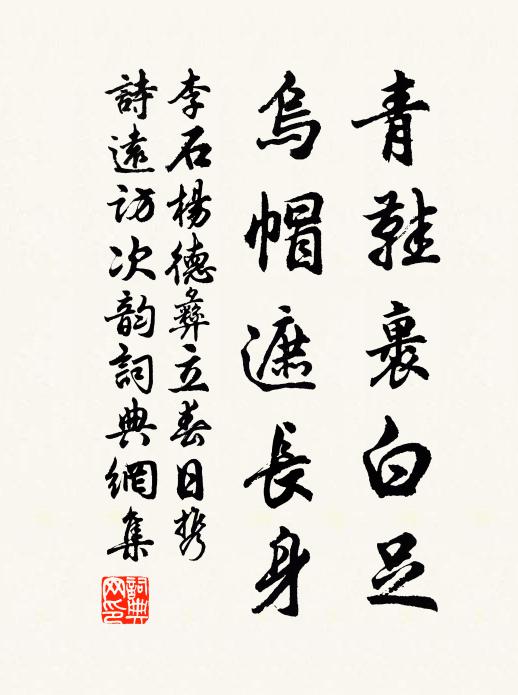 青鞋裹白足
烏帽遮長身
李石楊德彝立春日携
詩遠訪次韵詞典網集
詞典網印